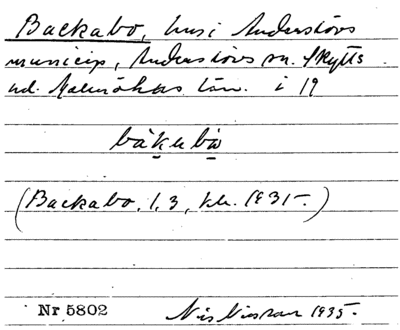 Backabo, hus i Anderslövs
municip, Anderslövs sn. Skytts
hd. Malmöhus län. i 19
(Backabo, 1, 3, kh. 1935.)
Nr 5802 Nils Nilsson 1935.